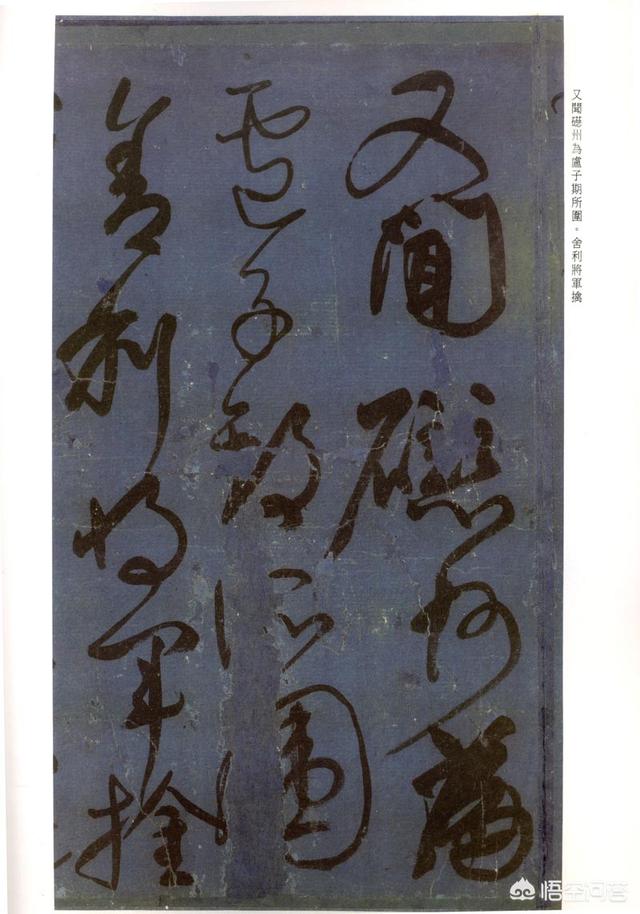 又聞礠州為盧子期所圍。舍利將軍擒
又聞礠州為
盧子期所圍
舍利將軍擒
悟空问答